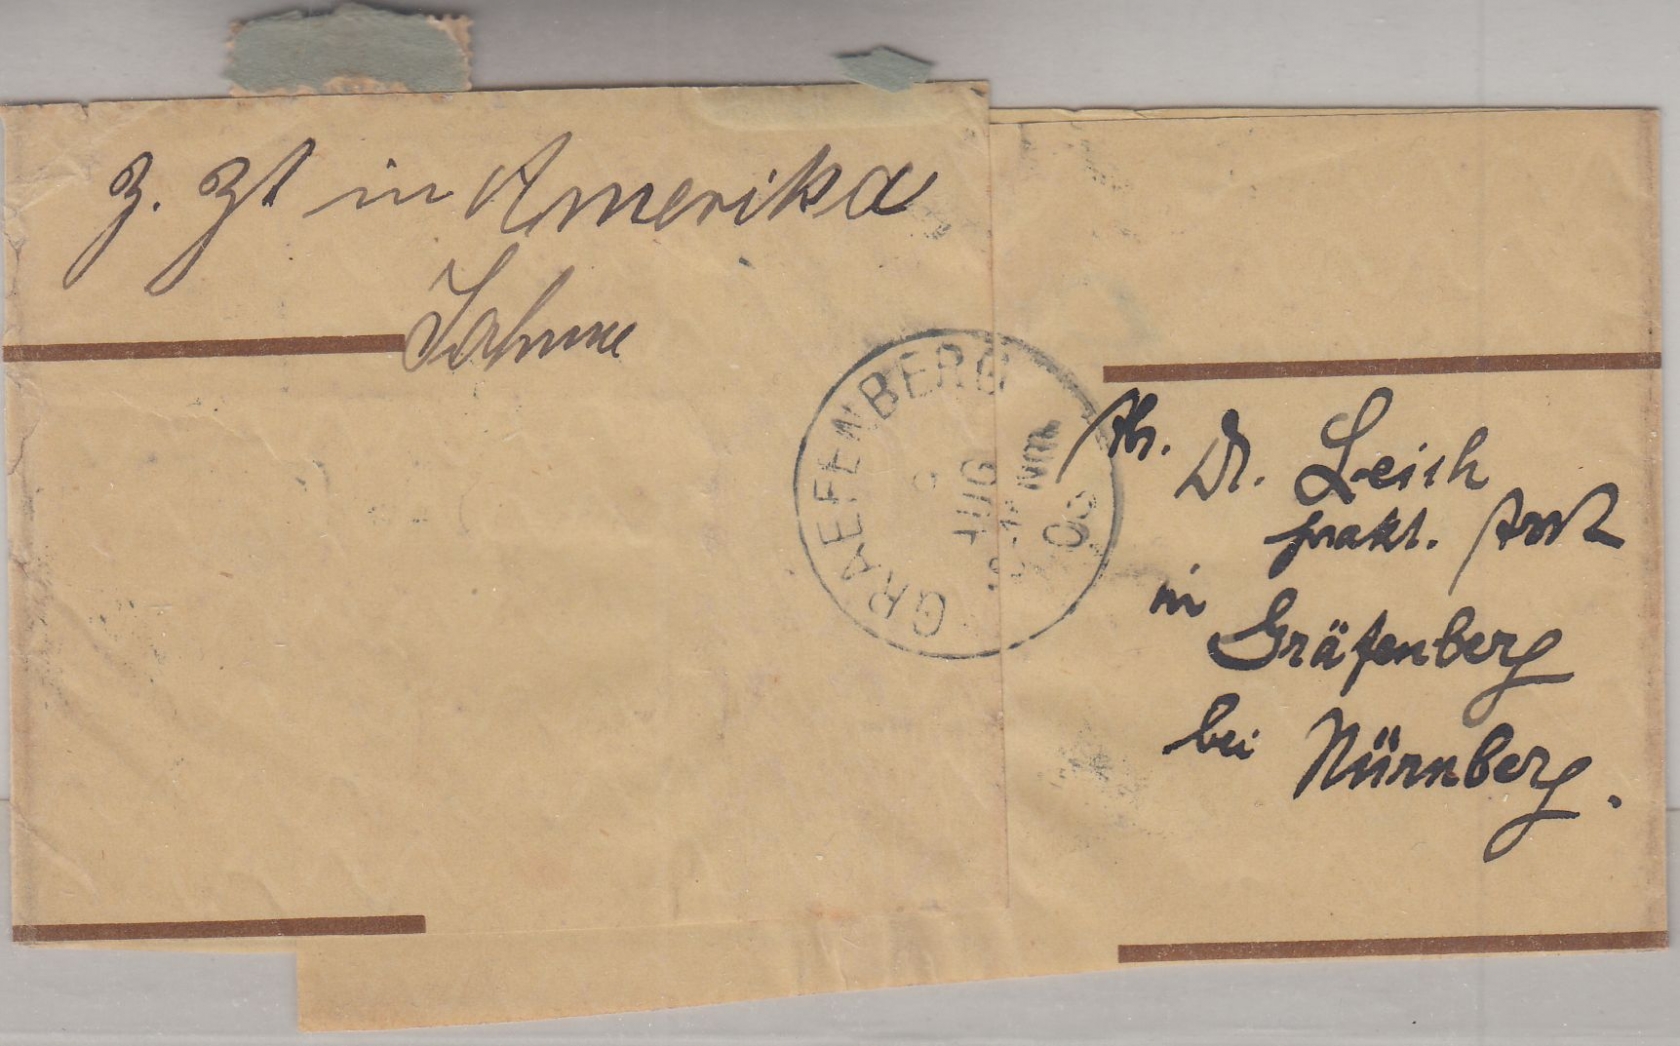 z. Zt in Amerika
GRAEFENBERG
AUG
Nm.
Dr. Leich
prakt. Arzt
in
Gräfenberg
bei Nürnberg.